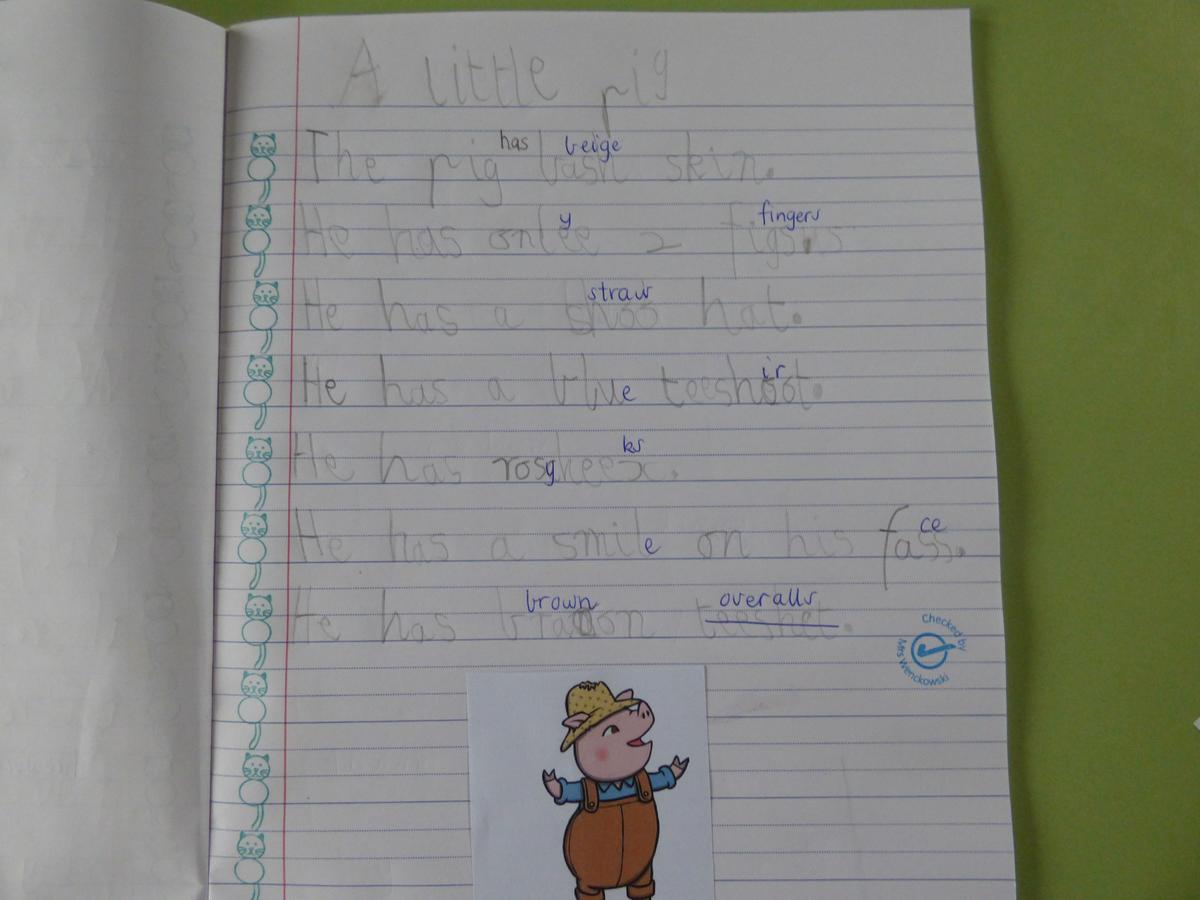 A little pig
has beige
The pig bash skin.
y fingers
He has onlee 2 figs.s
straw
He has a shoo hat.
ir
He has a blue teeshoot.
ks
He has rosykeex.
ce
He has a smile on his fass.
brown overalls
He has teeshet.
Checked by
Mrs Wenckowski